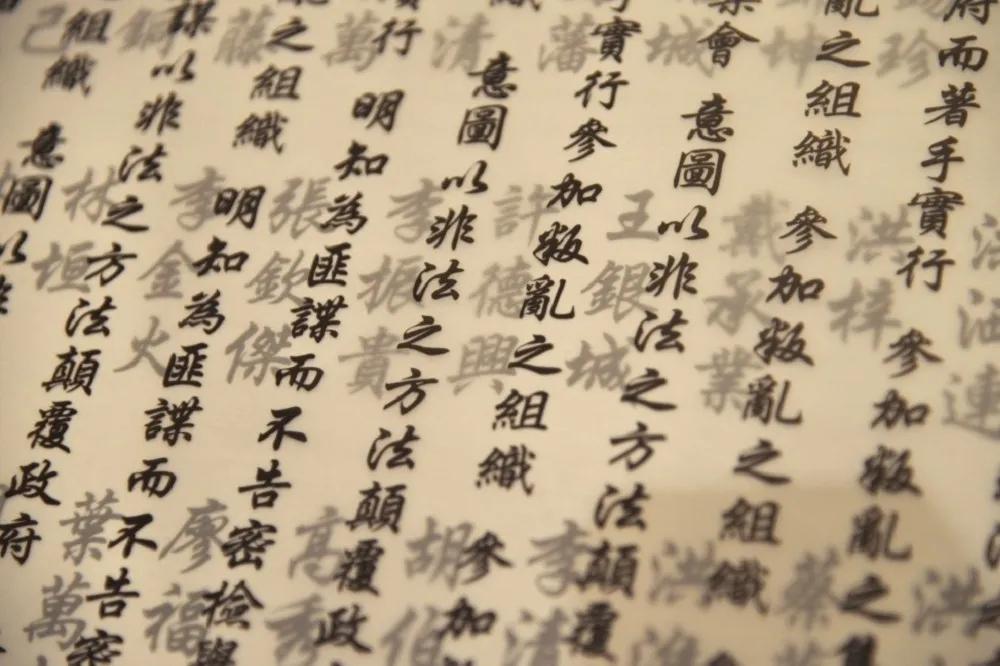 府而著手實行 參加叛亂之
亂之組織 參加叛亂之組織
會 意圖以非法之方法顛覆
實行參加叛亂之組織 參加
意圖以非法之方法顛覆政
行 明知為匪諜而不告密檢舉
之組織 明知為匪諜而不告密
諜以非法之方法顛覆政府
組織 意圖以非
珍
坤
城
藩
清
萬
藤
銅
己
連
洪梓
戴承業
王銀城
許德興
李振貴
張欽傑
李金火
林垣
洪
蔡
洪
李清
胡伯
高秀
廖福
葉萬